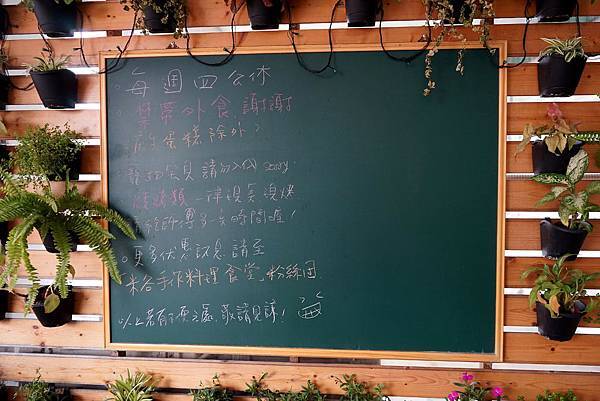 。每週四公休
。禁帶外食,謝謝
(生日蛋糕除外)
寵物寶貝請勿入內 sorry.
。燒烤類一律現點現烤
請給師傅多一點時間哦!
。更多优惠訊息請至
"米谷手作料理食堂"粉絲団
以上若有不便之處,敬請見諒!